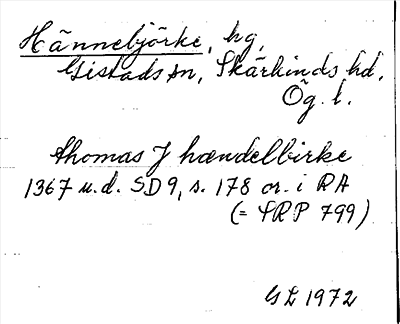 Hännebjörke, hg,
Gistads sn, Skärkinds hd,
Ög. l.
thomas J hændelbirke
1367 u.d. SD 9, s. 178 or. i RA
(= SRP 799)
GL 1972